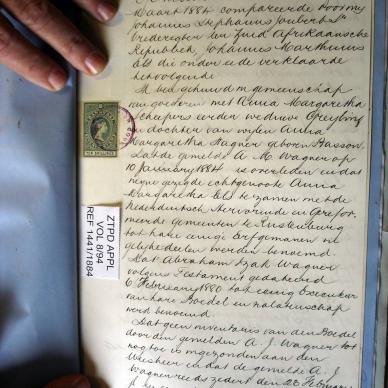 Maart 1884 compareerde voor my
Johannes Stephanus Joubert Sr
Vrederegter den Zuid Afrikaansche
Republiek, Johannes Marthinus
Els die onder ede verklaarde
hetvolgende
Ik ben gehuwd in gemeenschap
van goederen met Anna Margaretha
Scheepers eerder weduwe Greyling
en dochter van wylen Anna
Margaretha Wagner geboren Basson.
Dat de gemelde A. M. Wagner op
10 January 1884 is overleden en dat
myne gezegde echtgenoote Anna
Margaretha Els te zamen met de
Nederduitsch Hervormde en Gerefor-
meerde gemeenten te Rustenburg
tot hare eenige Erfgenamen in
gelykedeelen werden benoemd.
Dat Abraham Izak Wagner
volgens Testament gedateerd
6 February 1880 tot eenig Executeur
van hare Boedel en nalatenschap
werd benoemd.
Dat geen inventaris van den Boedel
door den gemelden A. J. Wagner tot
nog toe is ingezonden aan den
Weesheer en dat de gemelde A. J.
Wagner reeds zedert den
ZTPD APPL
VOL 8/94
REF 1441/1884